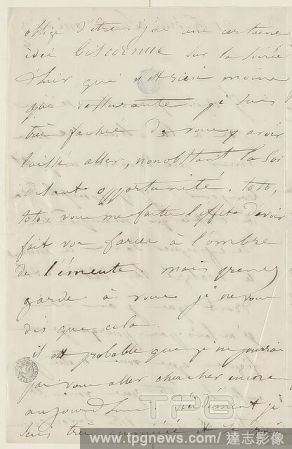 obligé d'être j'ai une certaine
idée biscornue sur la soirée
d'hier qui n'est rien moins
que rassurante. je suis
très fachée de vous y avoir
laissé aller, nonobstant la soi
disant opportunité. toto,
toto vous me faites l'effet d'avoir
fait vos farces à l'ombre
de l'émeute, mais prenez
garde à vous je ne vous
dis que cela.
il est probable que je ne pourrai
pas vous aller chercher encore
aujourd'hui seulement je
suis très
TPG
www.tpgnews.com / 達志影像